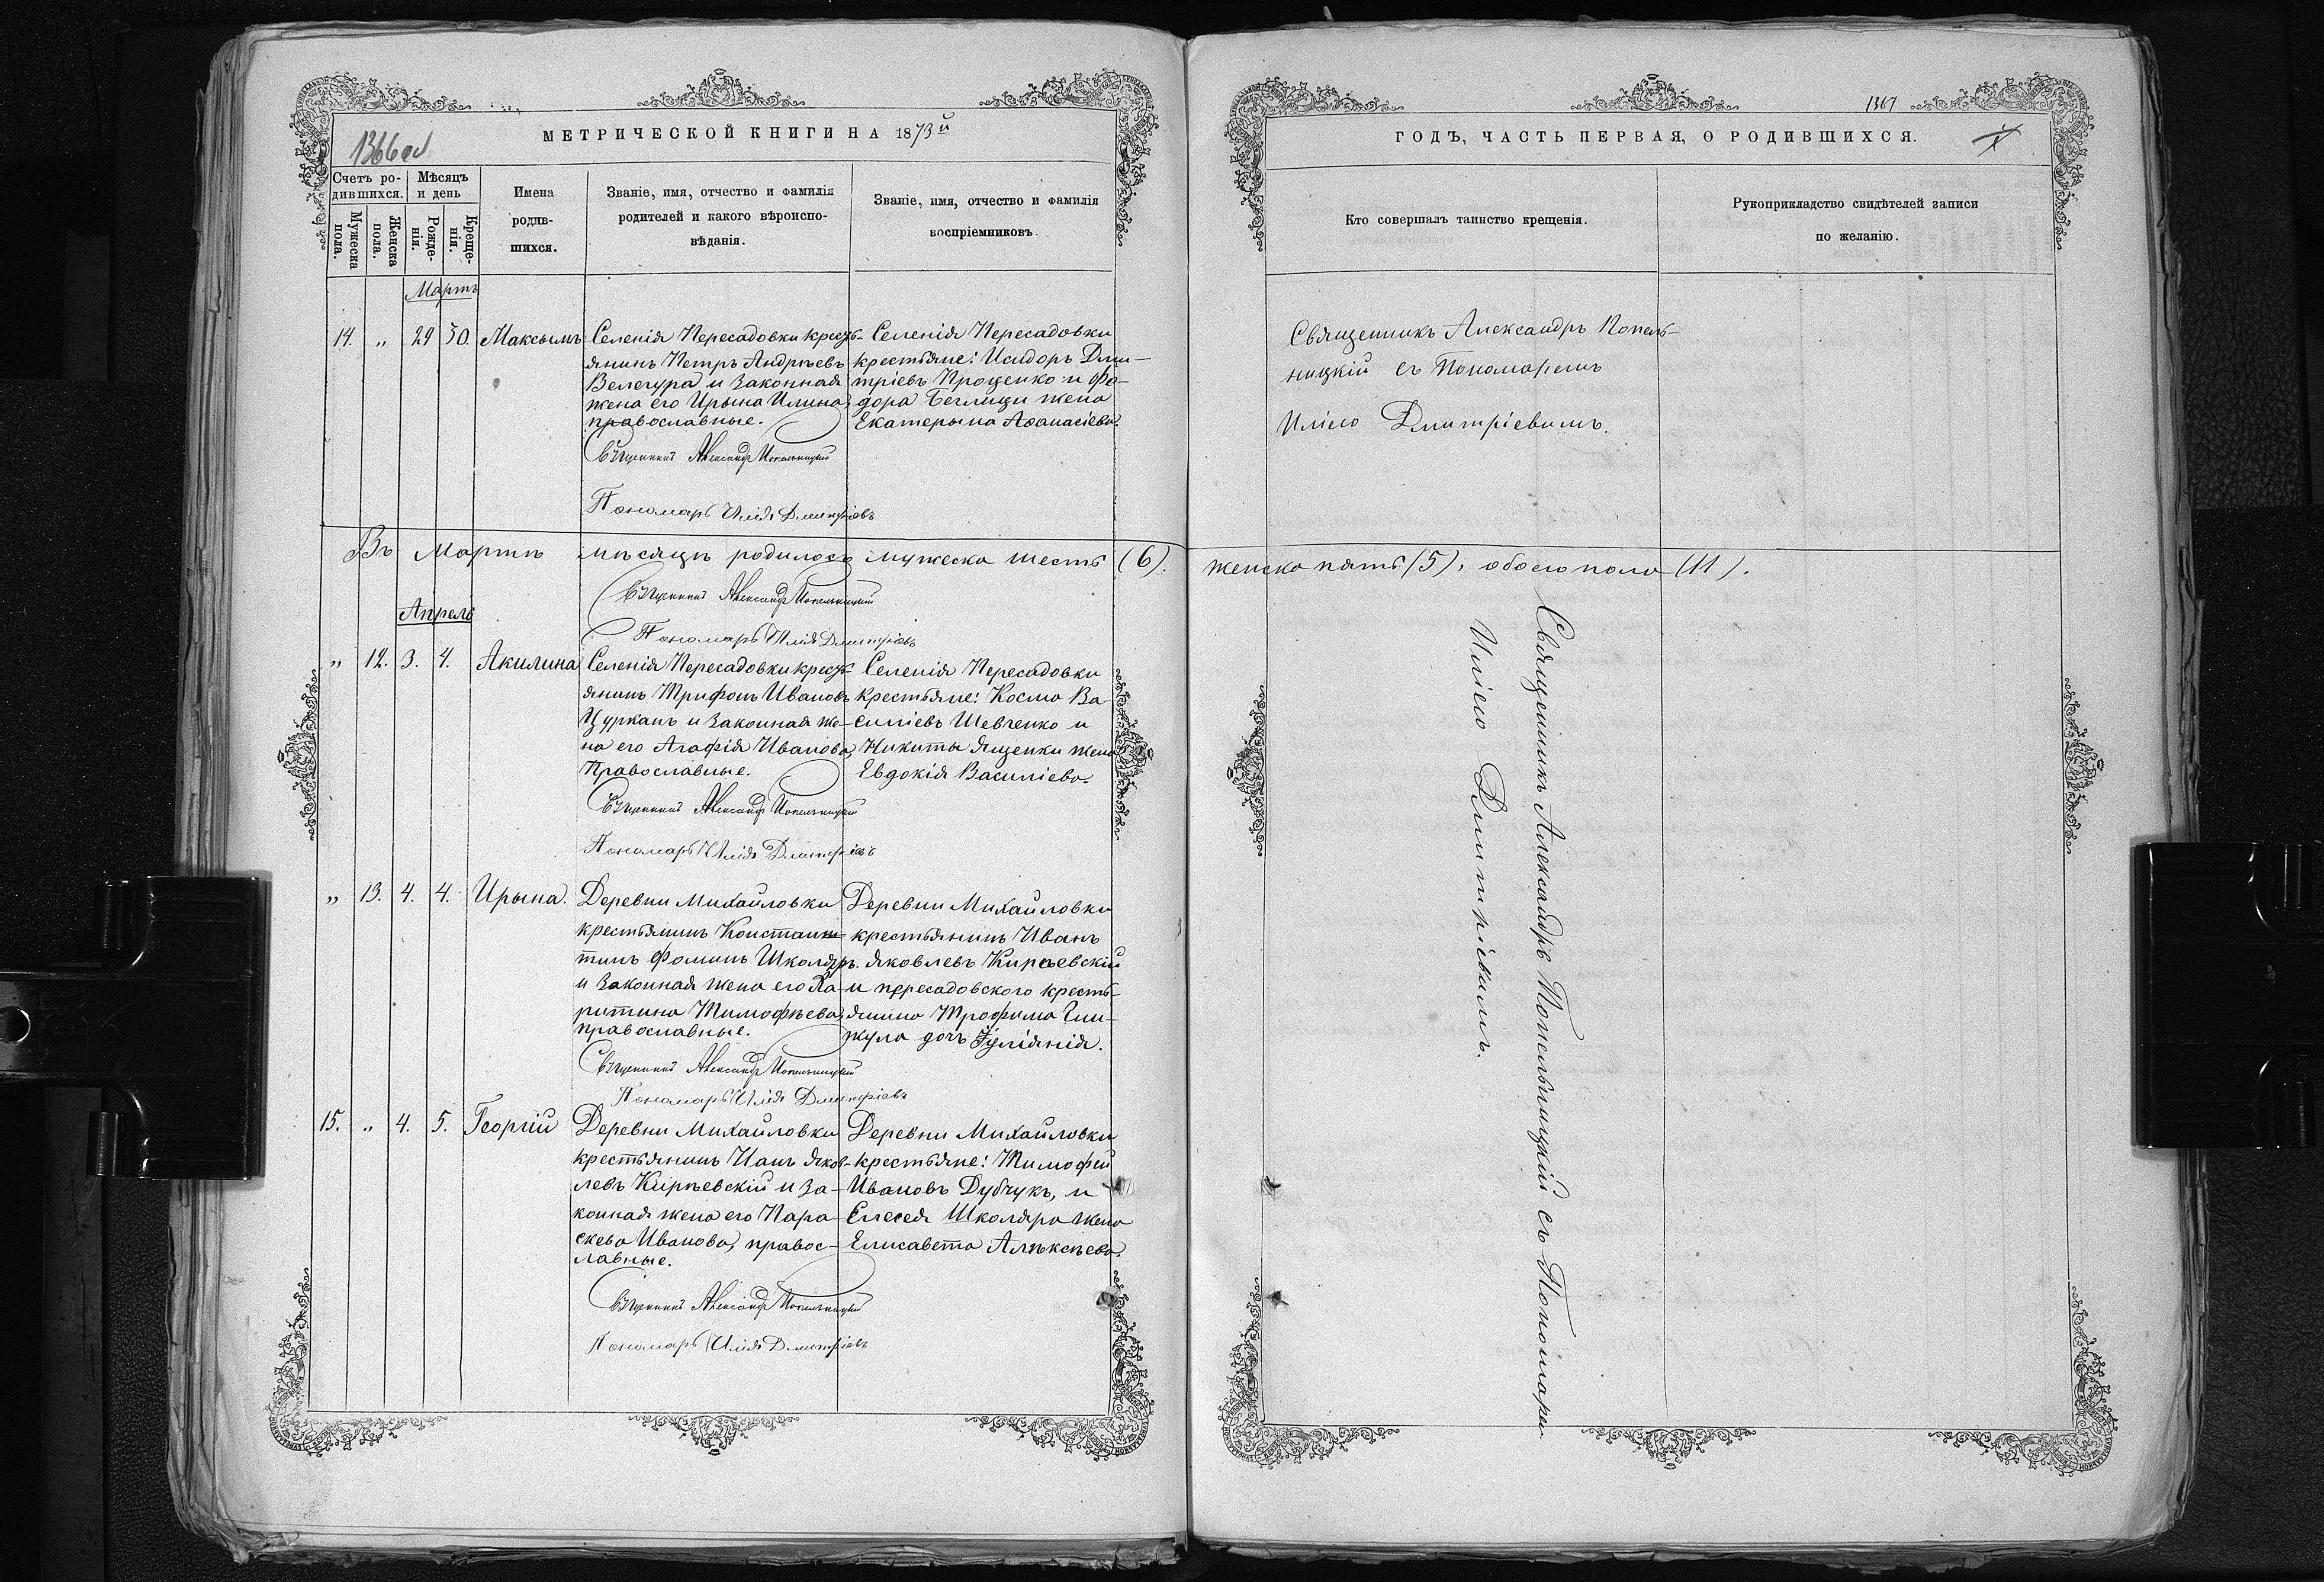 1366 об
МЕТРИЧЕСКОЙ КНИГИ НА 1873й
Счетъ ро-
дившихся.
Мѣсяцъ
и день
Мужеска
пола.
Женска
пола.
Рожде-
нія.
Креще-
нія.
Имена
родив-
шихся.
Званіе, имя, отчество и фамилія
родителей и какого вѣроиспо-
вѣданія.
Званіе, имя, отчество и фамилія
воспріемниковъ.
Мартъ
14. „ 29 30. Максымъ
Селенія Пересадовки крестъ-
янинъ Петръ Андрѣевъ
Велегура и законная
жена его Ирына Илина,
православные.
Священникъ Александръ Попельницкій
Пономарь Илія Дмитріевъ
Селенія Пересадовки
крестьяне: Исидоръ Дми-
тріевъ Проценко и Фе-
дора Беглицы жена
Екатерына Аѳанасіева.
Въ Мартѣ мѣсяцѣ родилось мужеска шесть (6).
Священникъ Александръ Попельницкій
Пономарь Илія Дмитріевъ
Апрель
„ 12. 3. 4. Акилина
Селенія Пересадовки крест-
янинъ Трифонъ Ивановъ
Цурканъ и законная же-
на его Агафія Иванова,
Православные.
Священникъ Александръ Попельницкій
Пономарь Илія Дмитріевъ
Селенія Пересадовки
крестьяне: Косма Ва-
силіевъ Шевченко и
Никиты Яценки жена
Евдокія Василіева.
„ 13. 4. 4. Ирына.
Деревни Михайловки
крестьянинъ Констан-
тинъ Фоминъ Школяръ.
и законная жена его Ха-
ритина Тимофѣева,
православные.
Священникъ Александръ Попельницкій
Пономарь Илія Дмитріевъ
Деревни Михайловки
крестьянинъ Иванъ
Яковлевъ Кирѣевскій
и пересадовского кресть-
янина Трофима
дочь Іуліянія.
15. „ 4. 5. Георгій
Деревни Михайловки
крестьянинъ Иванъ Яков-
левъ Кирѣевскій и за-
конная жена его Пара-
скева Иванова, правос-
лавные.
Священникъ Александръ Попельницкій
Пономарь Илія Дмитріевъ
Деревни Михайловки
крестьяне: Тимофей
Ивановъ Дубчукъ, и
Елесея Школяра жена
Елисавета Алѣксѣева.
1367
ГОДЪ, ЧАСТЬ ПЕРВАЯ, О РОДИВШИХСЯ.
Кто совершалъ таинство крещенія.
Рукоприкладство свидѣтелей записи
по желанію.
Священникъ Александръ Попель-
ницкій съ Пономаремъ
Иліею Дмитріевымъ.
женска пять (5), обоего пола (11).
Священникъ Александръ Попельницкій съ Пономаремъ
Иліею Дмитріевымъ.